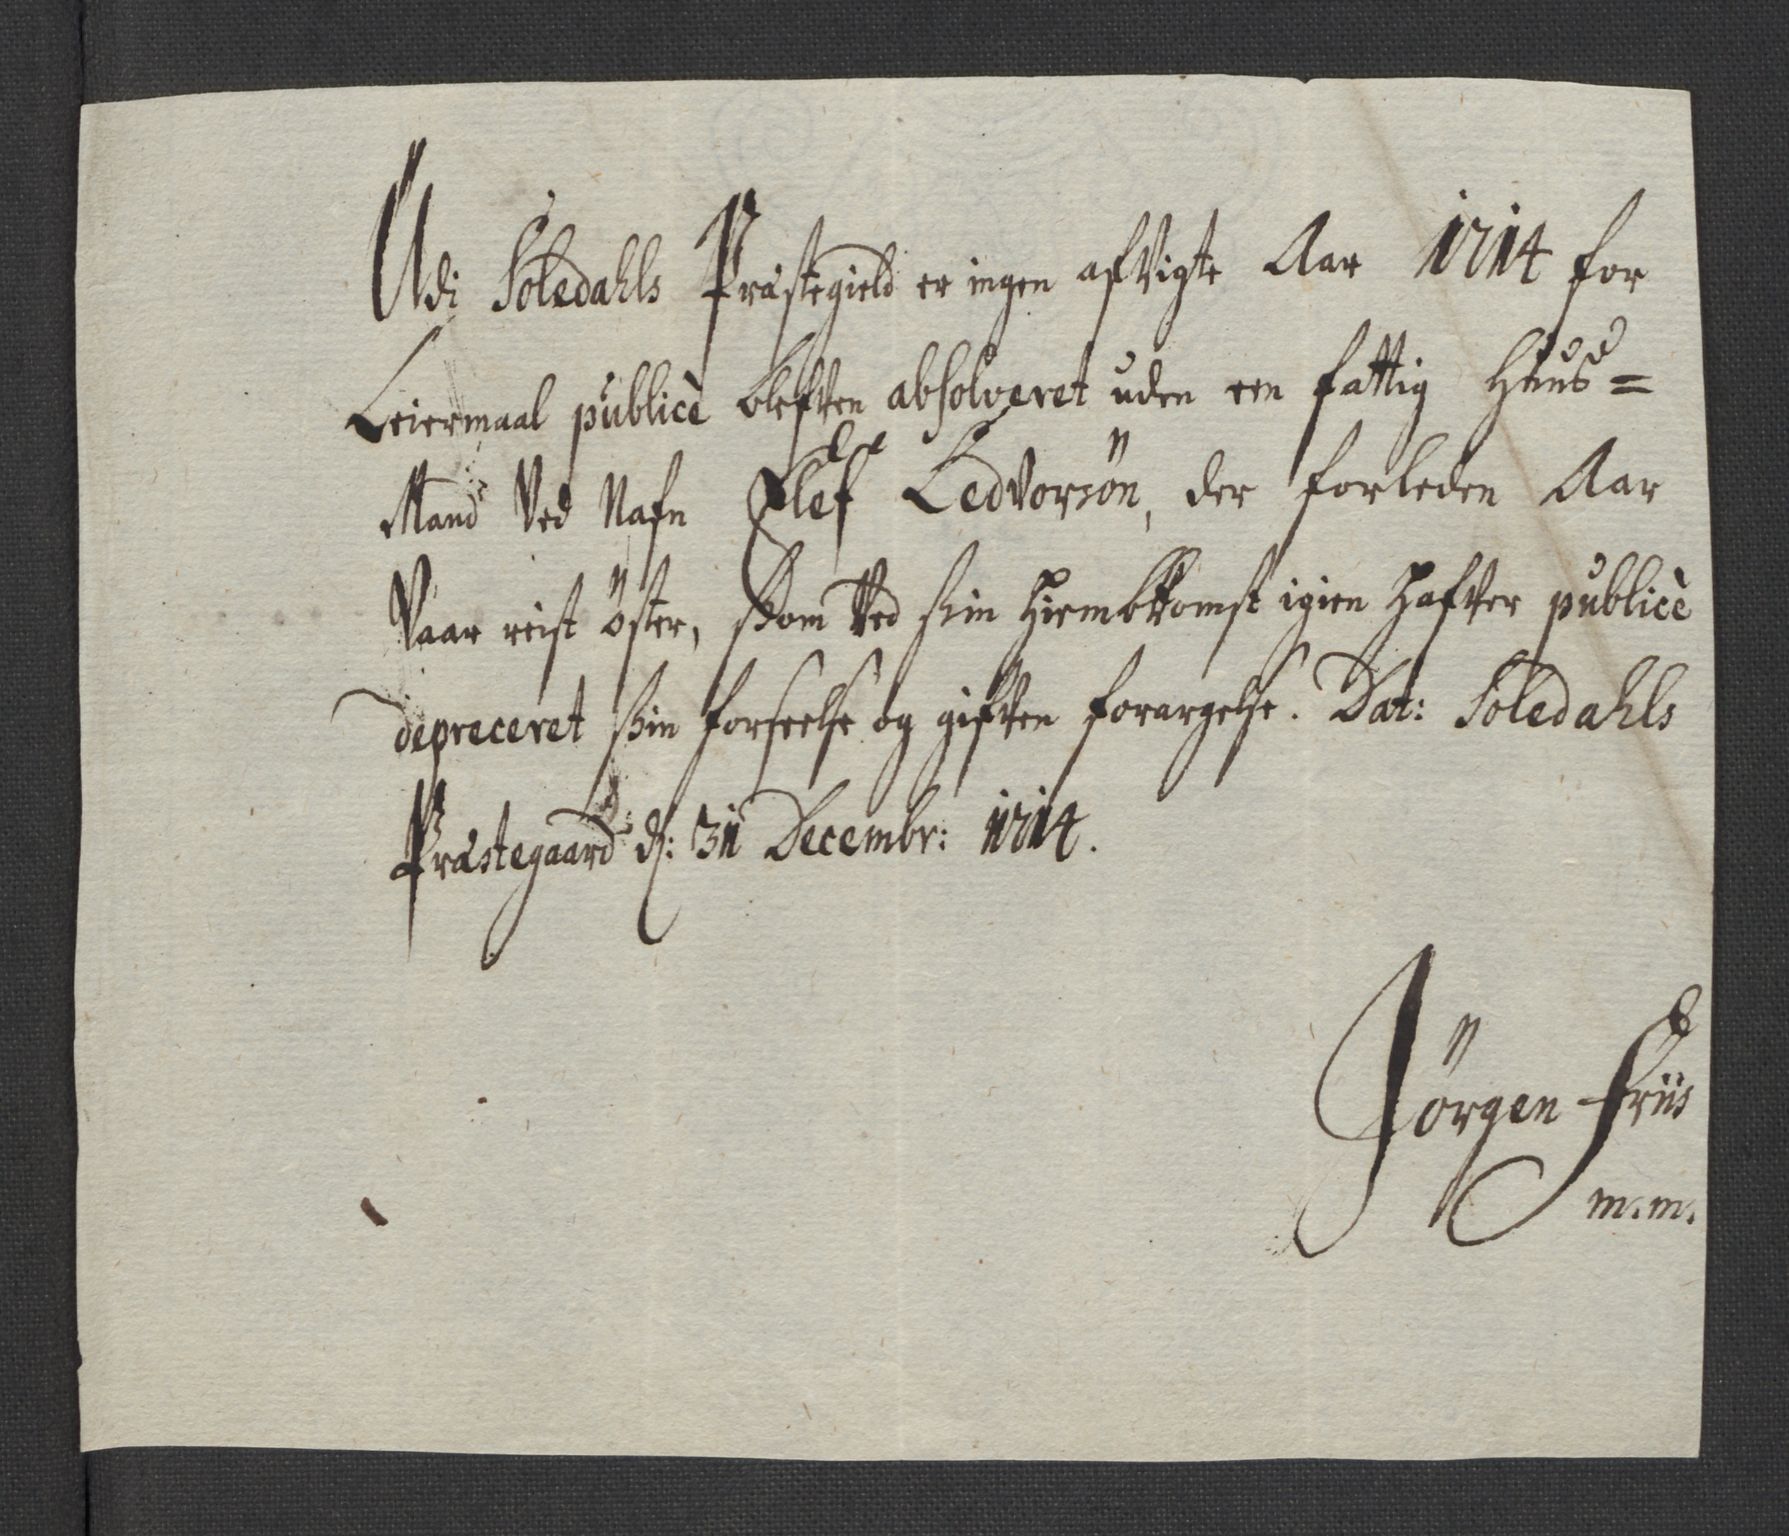 Udi Soledahls Præstegield er ingen afvigte Aar 1714 for
Leiermaal publicè blefven absolveret uden een fattig Huus=
Mand Ved Nafn Olef Ledvorsön, der forleden Aar
Vaar reist öster, som Ved sin hiembkomst igien hafver publicè
depreceret sin forseelse og gifven forargelse. Dat: Soledahls
Præstegaard d: 31 Decembr: 1714.
Jörgen Friis
m.m.